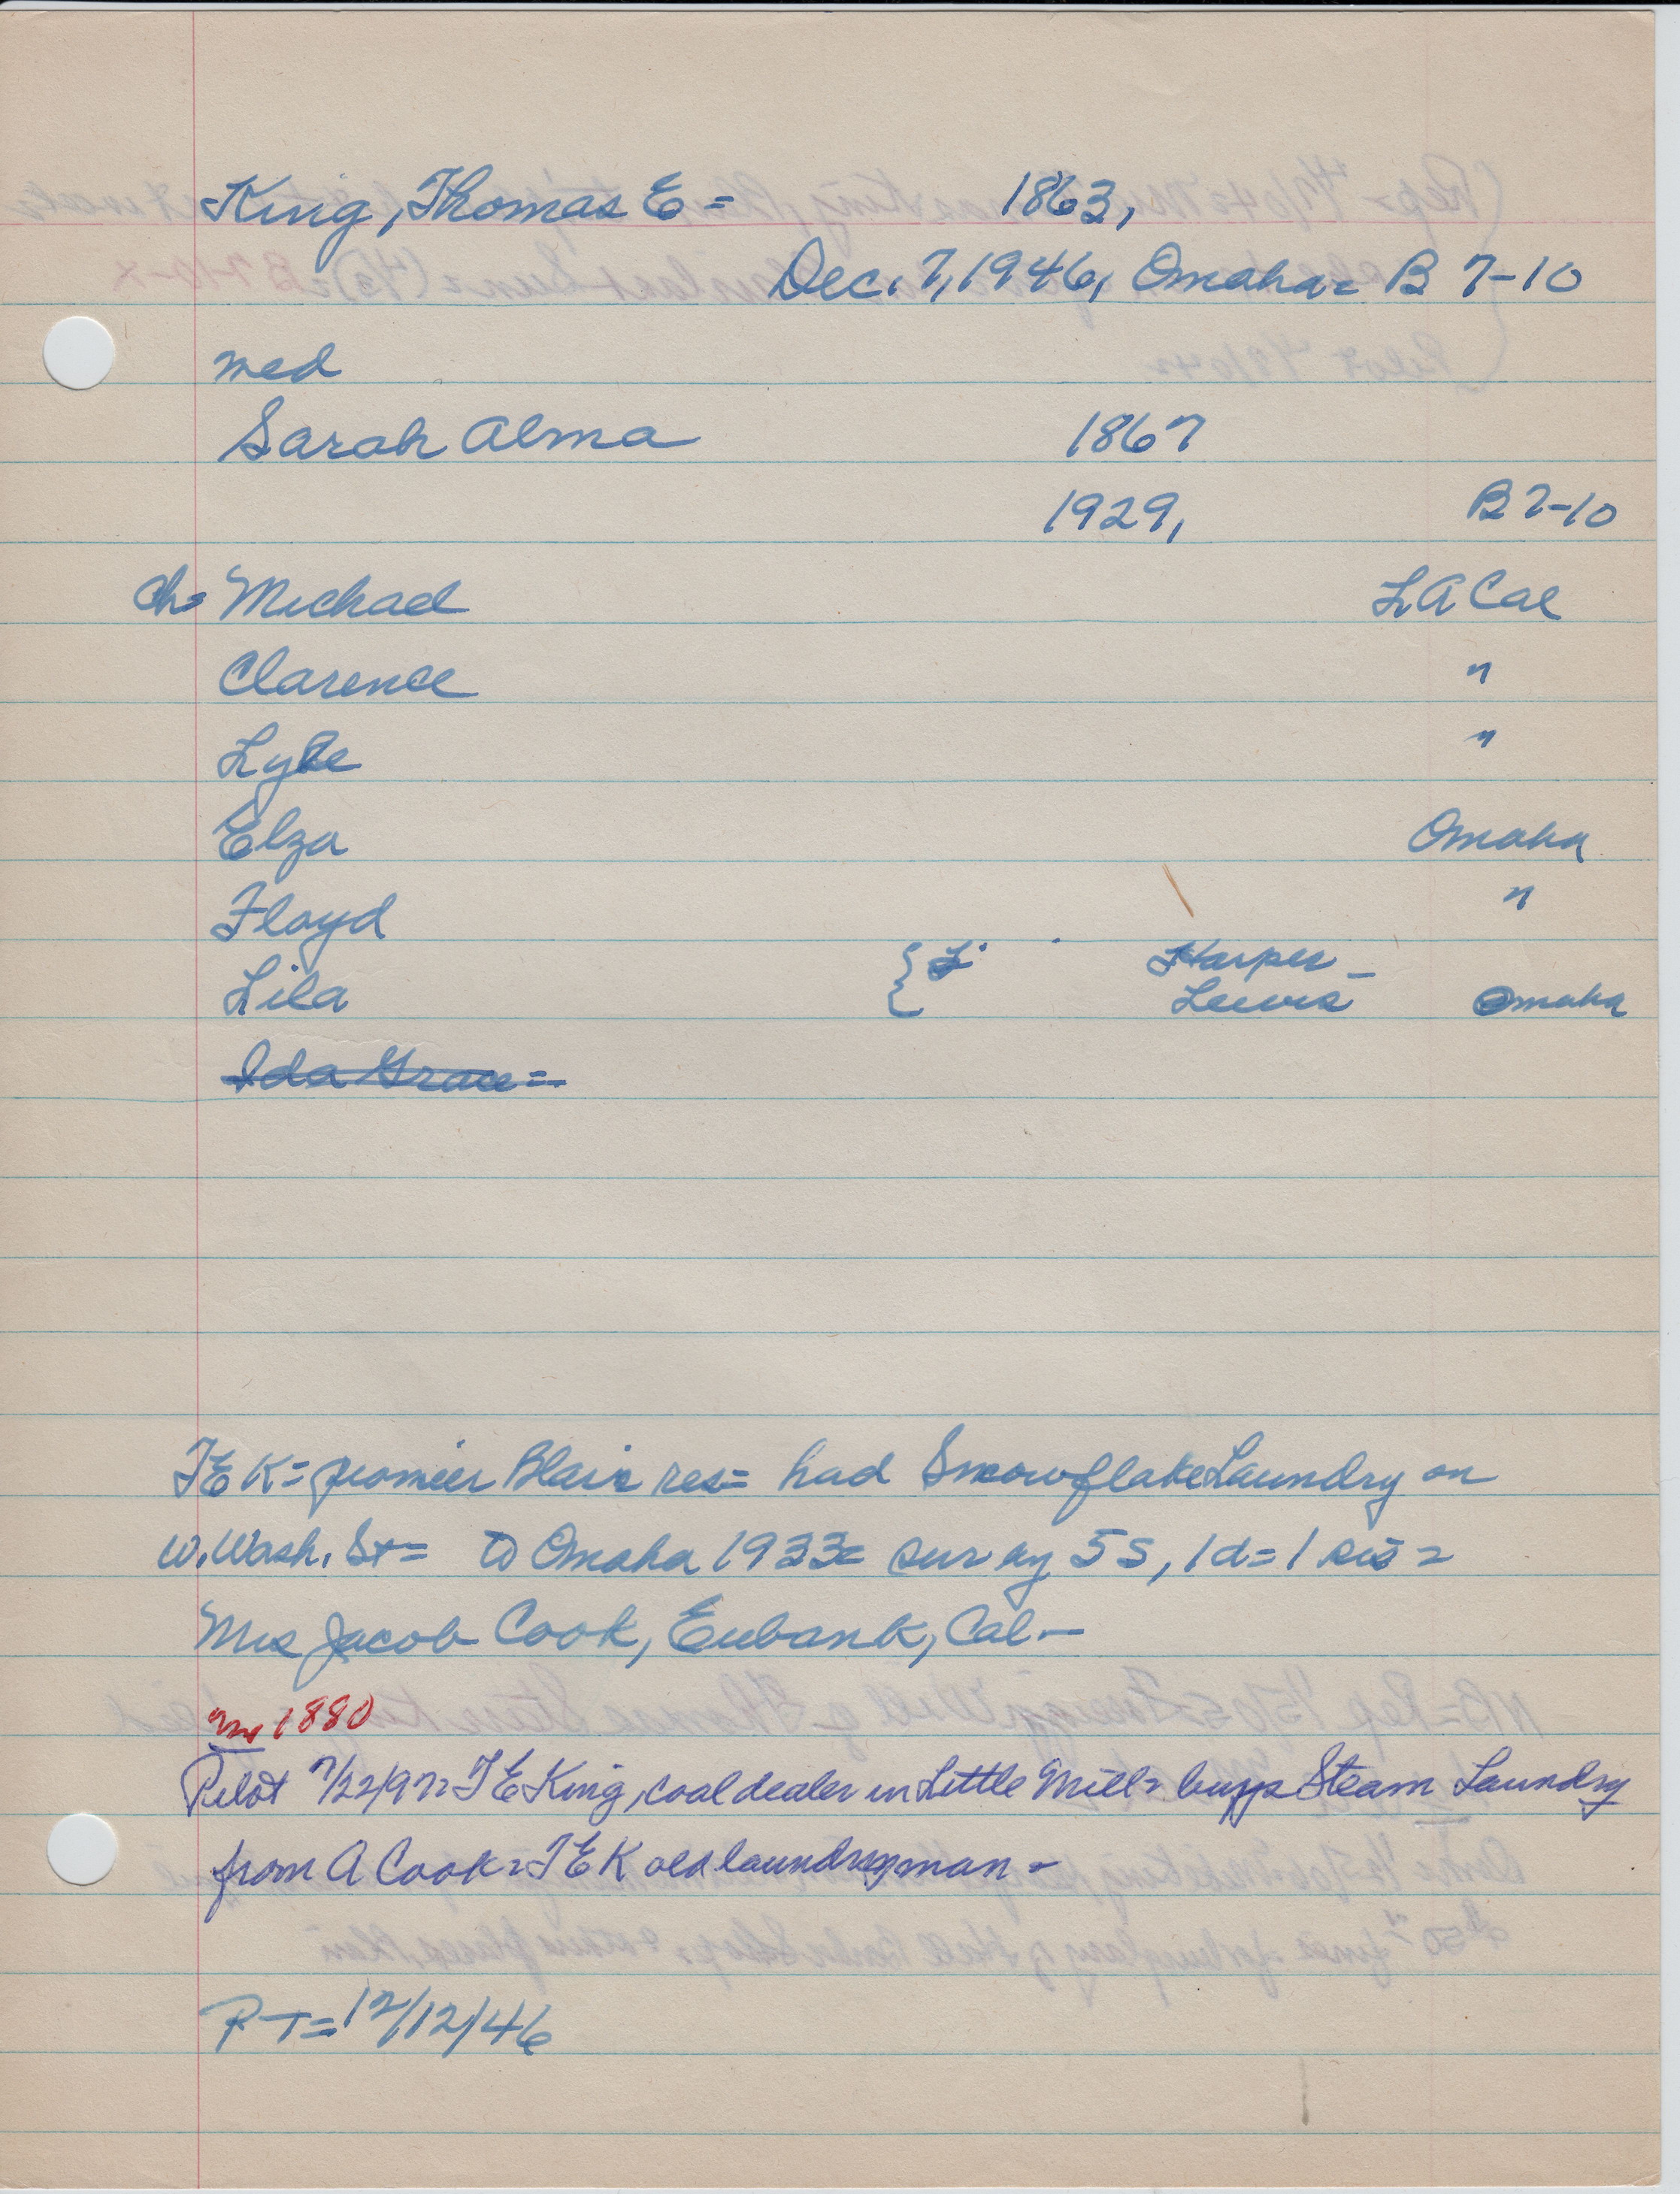 King, Thomas E = 1863,
Dec. 7, 1946, Omaha = B 7-10
med
Sarah Alma 1867
1929, B 7-10
Ch = Michael L A Cal
Clarence "
Lyle "
Elza Omaha
Floyd "
{ F. Harper -
Lila Lewis Omaha
Ida Grace =
T E K = pioneer Blair res = had Snowflake Laundry on
W. Wash. St = to Omaha 1933 = sur by 5 S, 1 d = 1 sis =
Mrs Jacob Cook, Eubank, Cal -
1880
Pilot 7/22/97 = T E King, coal dealer in Little Mill = buys Steam Laundry
from A Cook = T E K old laundryman -
P T = 12/12/46